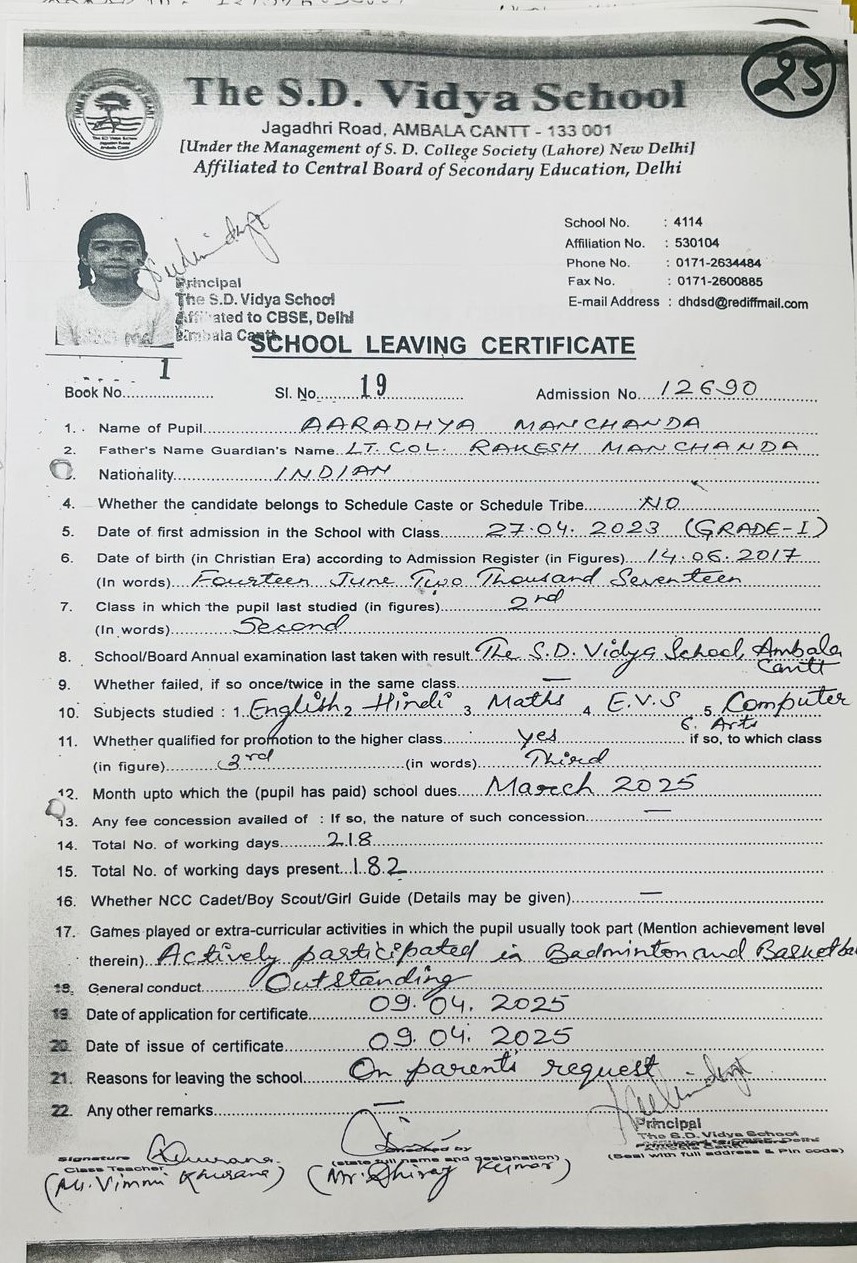 25
The S.D. Vidya School
Jagadhri Road, AMBALA CANTT - 133 001
[Under the Management of S. D. College Society (Lahore) New Delhi]
Affiliated to Central Board of Secondary Education, Delhi
School No. : 4114
Affiliation No. : 530104
Phone No. : 0171-2634484
Fax No. : 0171-2600885
E-mail Address : dhdsd@rediffmail.com
Principal
The S.D. Vidya School
Affiliated to CBSE, Delhi
Ambala Cantt.
SCHOOL LEAVING CERTIFICATE
Book No. 1 Sl. No. 19 Admission No. 12690
1. Name of Pupil AARADHYA MANCHANDA
2. Father's Name Guardian's Name LT. COL. RAKESH MANCHANDA
Nationality INDIAN
4. Whether the candidate belongs to Schedule Caste or Schedule Tribe NO
5. Date of first admission in the School with Class 27.04.2023 (GRADE-I)
6. Date of birth (in Christian Era) according to Admission Register (in Figures) 14.06.2017
(In words) Fourteen June Two Thousand Seventeen
7. Class in which the pupil last studied (in figures) 2nd
(In words) Second
8. School/Board Annual examination last taken with result The S.D. Vidya School, Ambala
Cantt
9. Whether failed, if so once/twice in the same class —
10. Subjects studied : 1. English 2. Hindi 3. Maths 4. E.V.S 5. Computer
6. Arts
11. Whether qualified for promotion to the higher class yes if so, to which class
(in figure) 3rd (in words) Third
12. Month upto which the (pupil has paid) school dues March 2025
13. Any fee concession availed of : If so, the nature of such concession —
14. Total No. of working days 218
15. Total No. of working days present 182
16. Whether NCC Cadet/Boy Scout/Girl Guide (Details may be given) —
17. Games played or extra-curricular activities in which the pupil usually took part (Mention achievement level
therein) Actively participated in Badminton and Basketba
18. General conduct Outstanding
19. Date of application for certificate 09.04.2025
20. Date of issue of certificate 09.04.2025
21. Reasons for leaving the school On parents request
22. Any other remarks —
Principal
The S.D. Vidya School
Signature Khurana
Class Teacher
(state full name and designation)
(Seal with full address & Pin code)
(Ms. Vimmi Khurana) (Mr. Kumar)